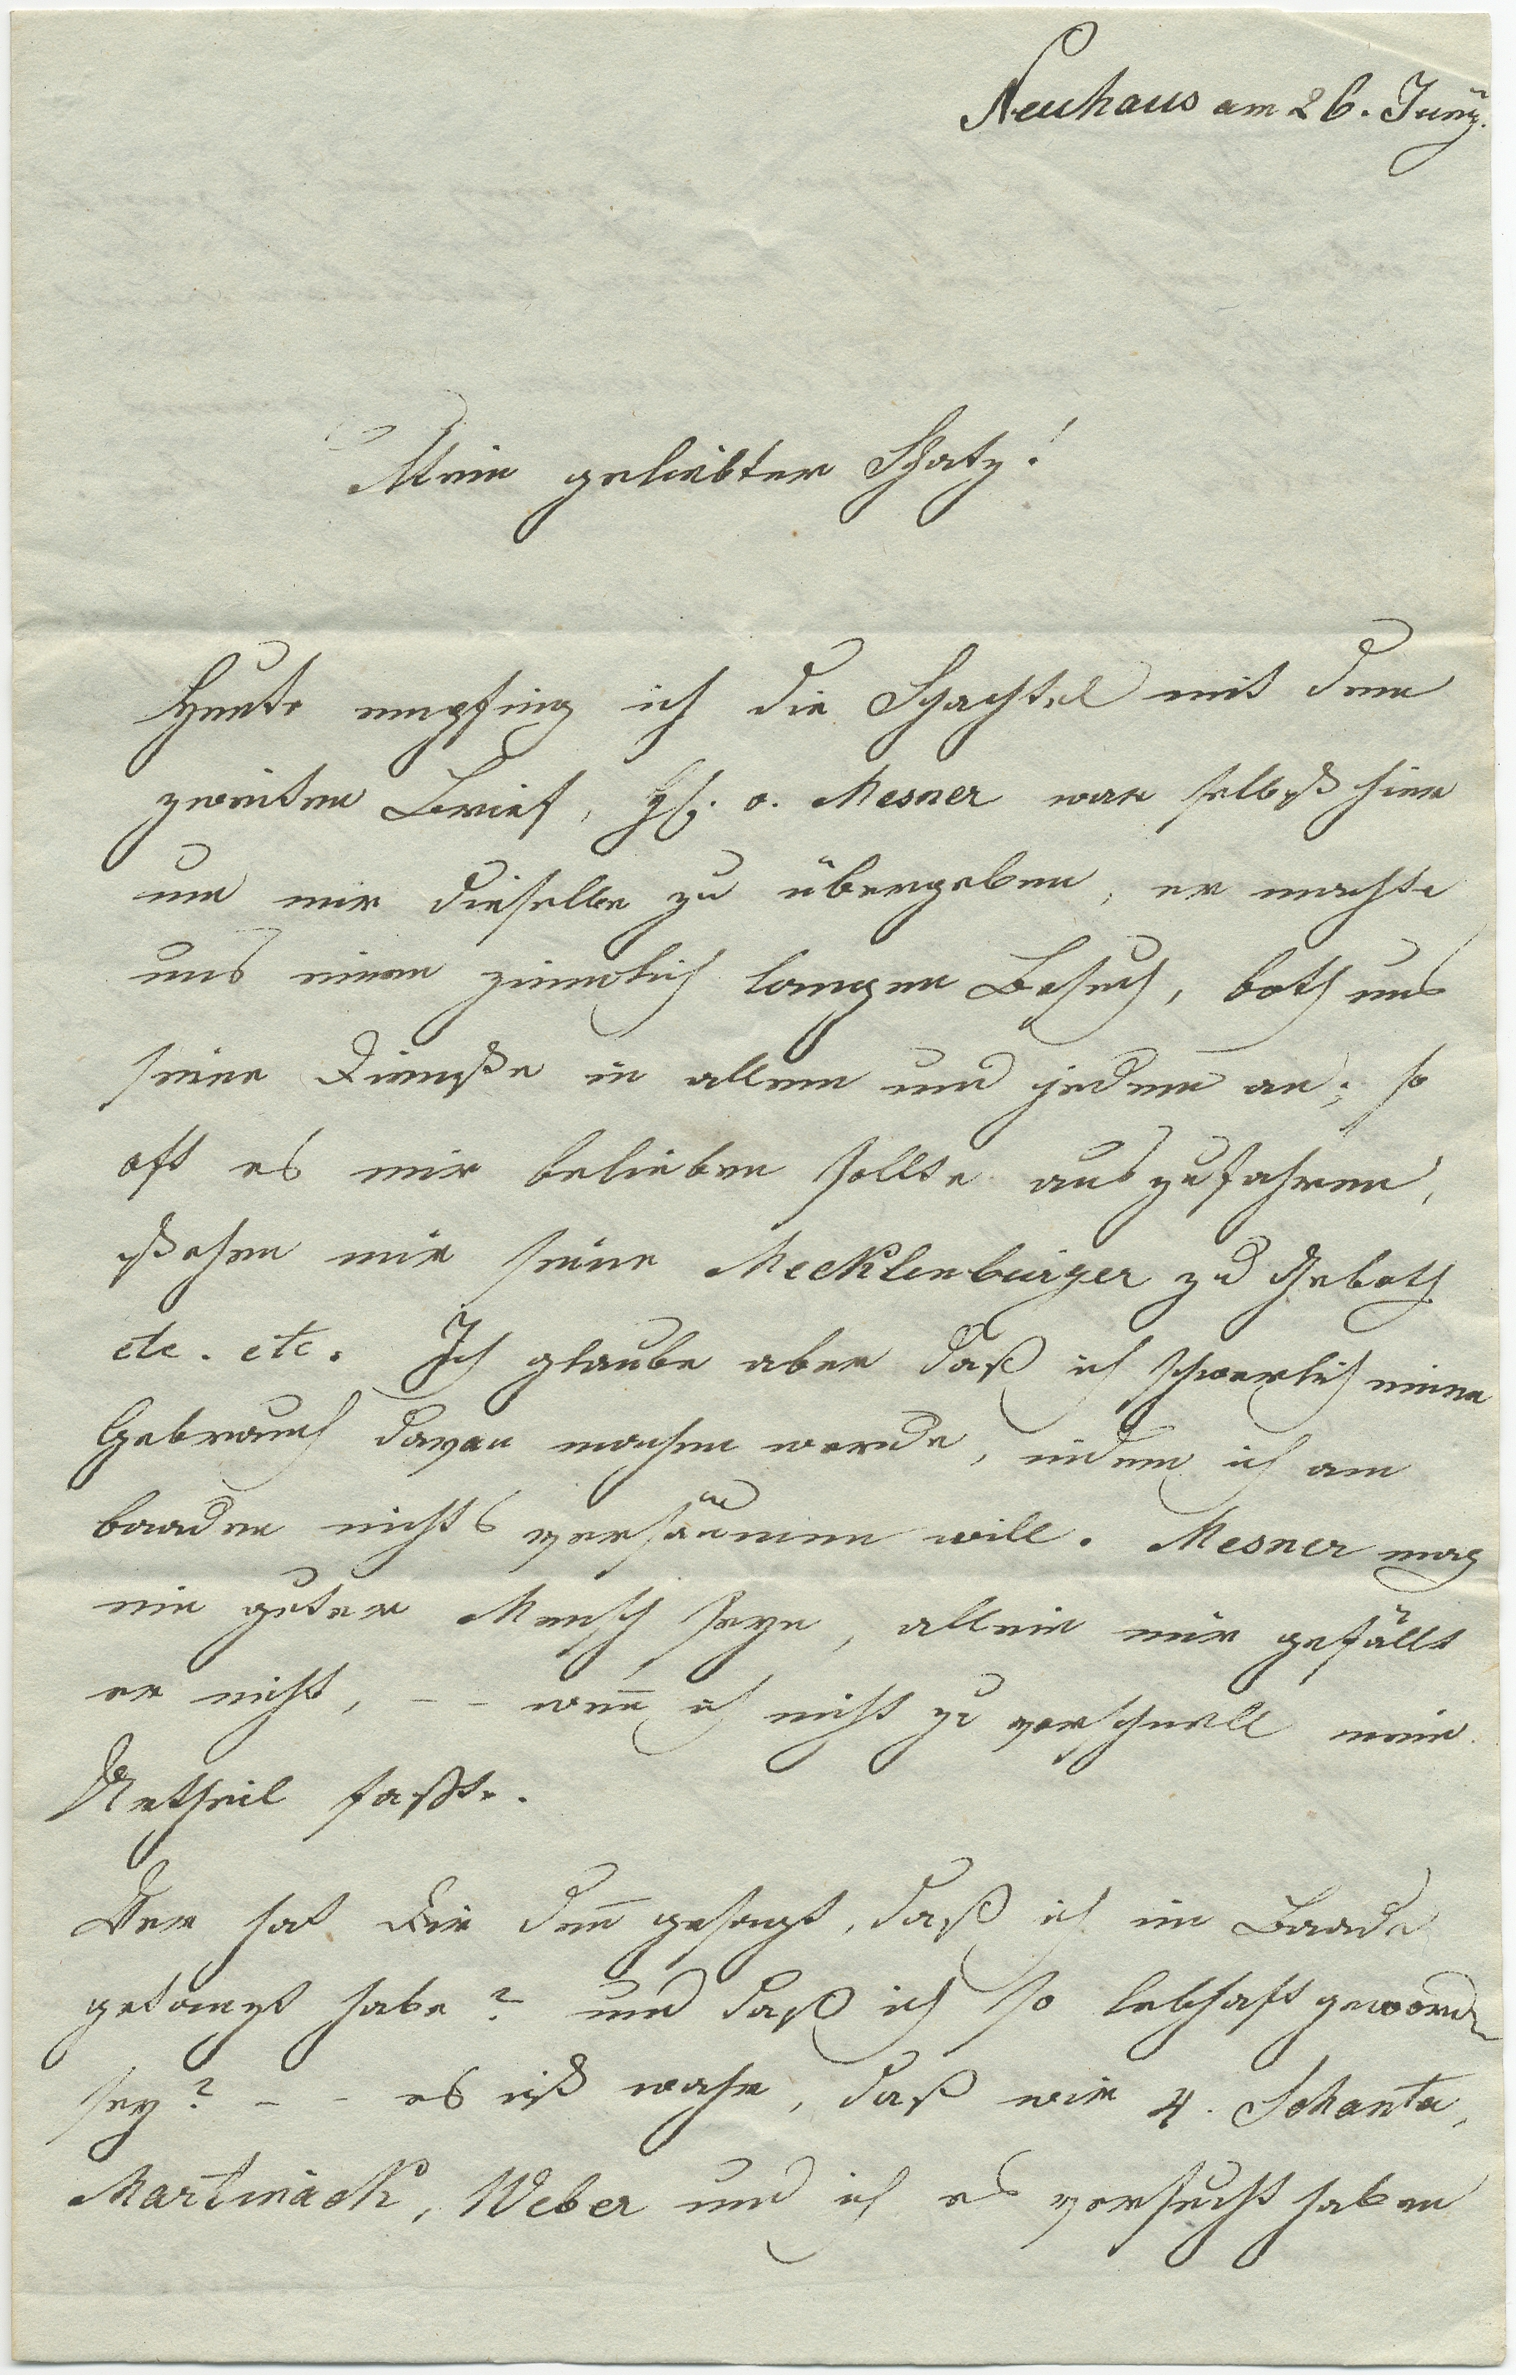 Neuhaus am 26. Juny.
Mein geliebter Schatz!
Heute empfing ich die Schachtel mit dem
zweiten Brief, H. v. Mesner war selbst hier
um mir dieselbe zu übergeben, er machte
uns einen ziemlich langen Besuch, both uns
seine Dienste in allem und jedem an; so
oft es mir belieben sollte auszufahren,
stehen mir seine Mecklenburger zu Geboth
etc. etc. Ich glaube aber daß ich schwerlich einen
Gebrauch davon machen werde, indem ich am
baaden nichts versäumen will. Mesner mag
ein guter Mensch seyn, allein mir gefällt
er nicht, - - wenn̄ ich nicht zu vorschnell mein
Urtheil faßte.
Wer hat Dir den̄ gesagt, daß ich im Baade
getanzt habe? und daß ich so lebhaft geworden
sey? - - es ist wahr, daß wir 4. Schanta,
Martinack, Weber und ich es versucht haben